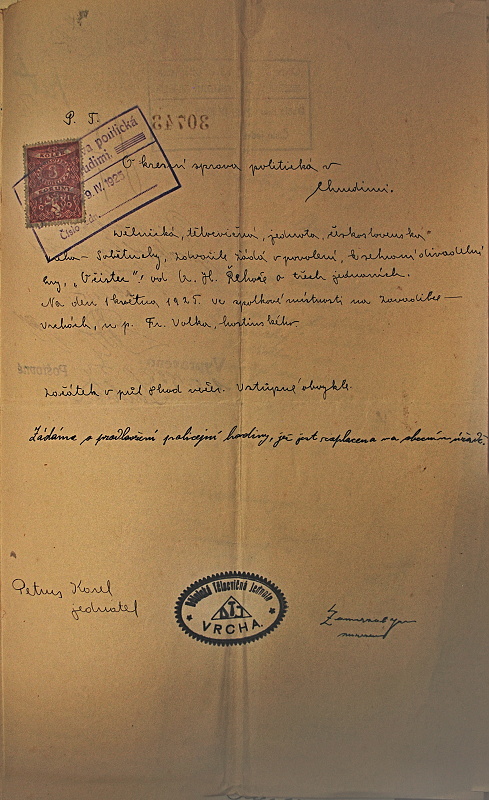 P. T.
KOLEK
3
KORUNY
va politická
Chrudimi.
9.IV.1925
Číslo
30743
Okresní správa politická v
Chrudimi.
Dělnická, tělocvičná, jednota, Československá
žádá v povolení, k sehrání divadelní
hry, „ od A. H. Řehoře o třech jednáních.
Na den 1 května 1925. ve spolkové místnosti na Zavadilce—
Vrchách, u p. Fr. Volka, hostinského.
Začátek v půl 8 hod večer. Vstupné obvyklé.
Žádáme o prodloužení policejní hodiny, jež jest zaplacena na obecním úřadě.
Petrus Karel
jednatel
Dělnická Tělocvičná Jednota
DTJ
VRCHA.
Poštovné
Vypraveno